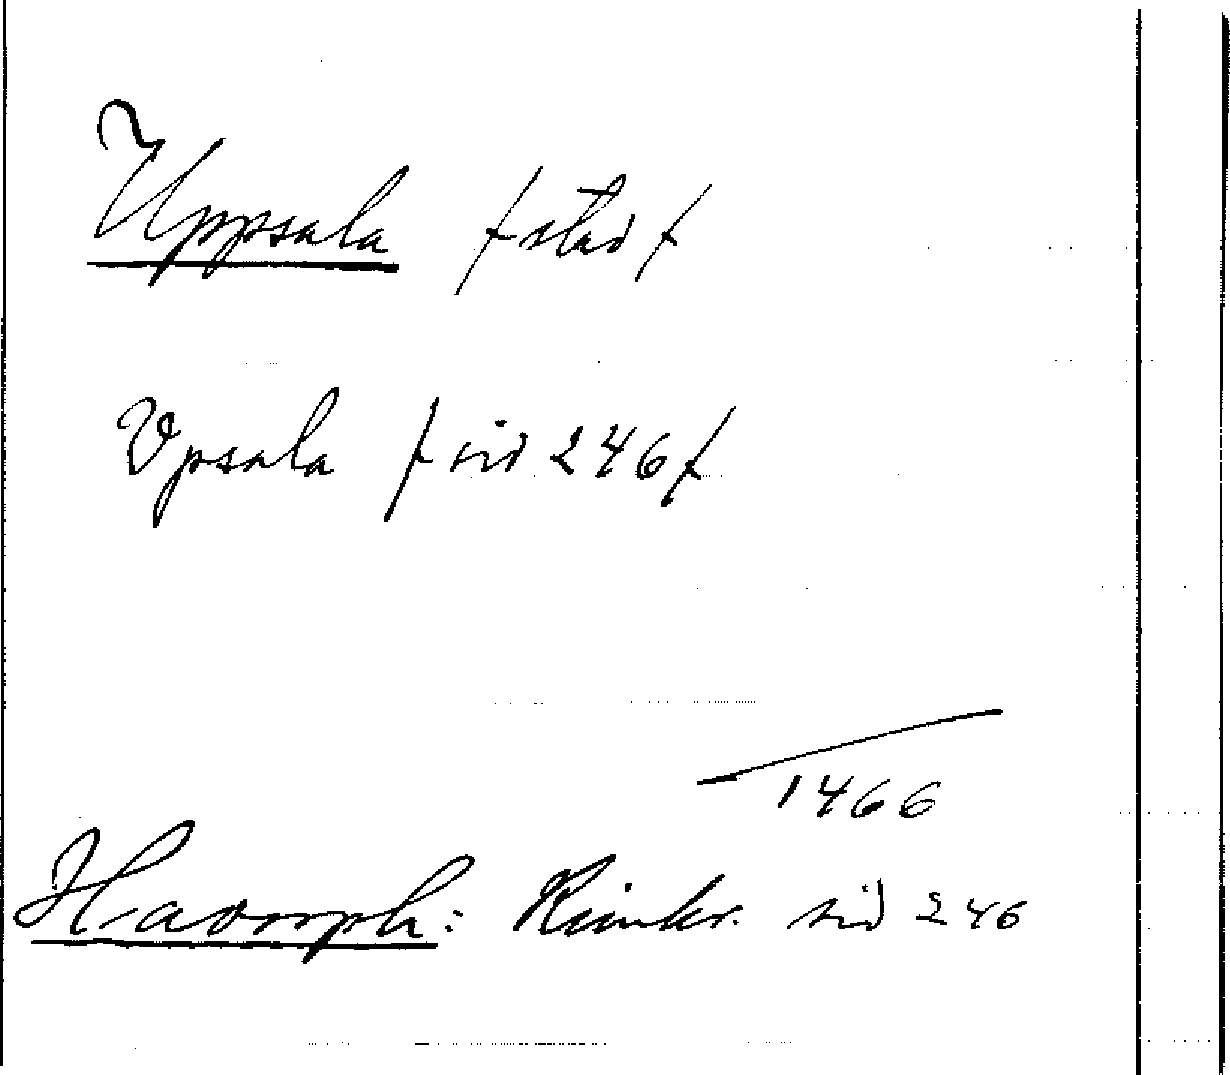 Uppsala /stad/
Vpsala /sid 246/
1466
Hadorph: Rimkr. sid 246